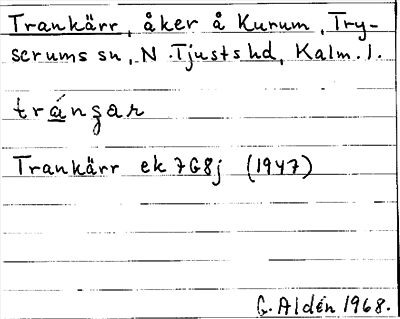 Trankärr, åker å Kurum, Try-
serums sn, N. Tjusts hd, Kalm. l.
trángar
Trankärr ek 7G8j (1947)
G. Aldén 1968.